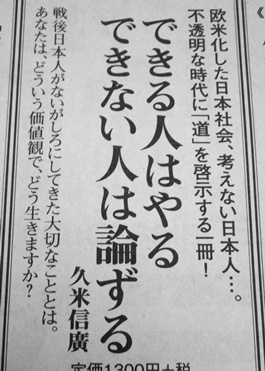 欧米化した日本社会、考えない日本人…。
不透明な時代に「道」を啓示する一冊！
できる人はやる
できない人は論ずる
久米信廣
戦後日本人がないがしろにしてきた大切なこととは。
あなたは、どういう価値観で、どう生きますか？
定価1300円+税